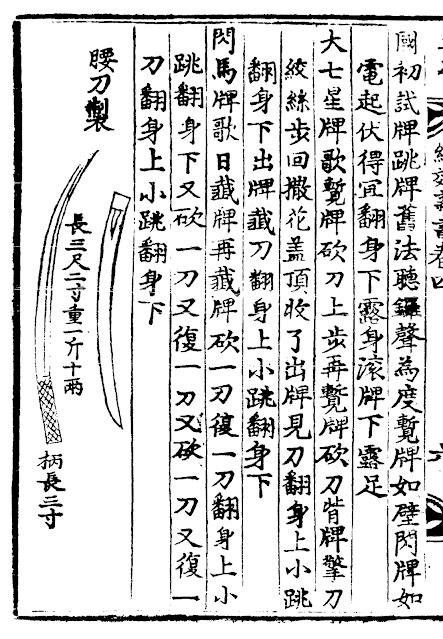 紀效新書卷四
國初試牌跳牌舊法聽鑼聲為度藏牌如壁閃牌如
電起伏得宜翻身下露身滚牌下露足
大七星牌歌藏牌砍刀上步再藏牌砍刀背牌擎刀
絞絲步回撒花盖頂收了出牌見刀翻身上小跳
翻身下出牌藏刀翻身上小跳翻身下
閃馬牌歌曰藏牌再藏牌砍一刀復一刀翻身上小
跳翻身下又砍一刀又復一刀又砍一刀又復一
刀翻身上小跳翻身下
腰刀製
長三尺二寸重一斤十兩
柄長三寸